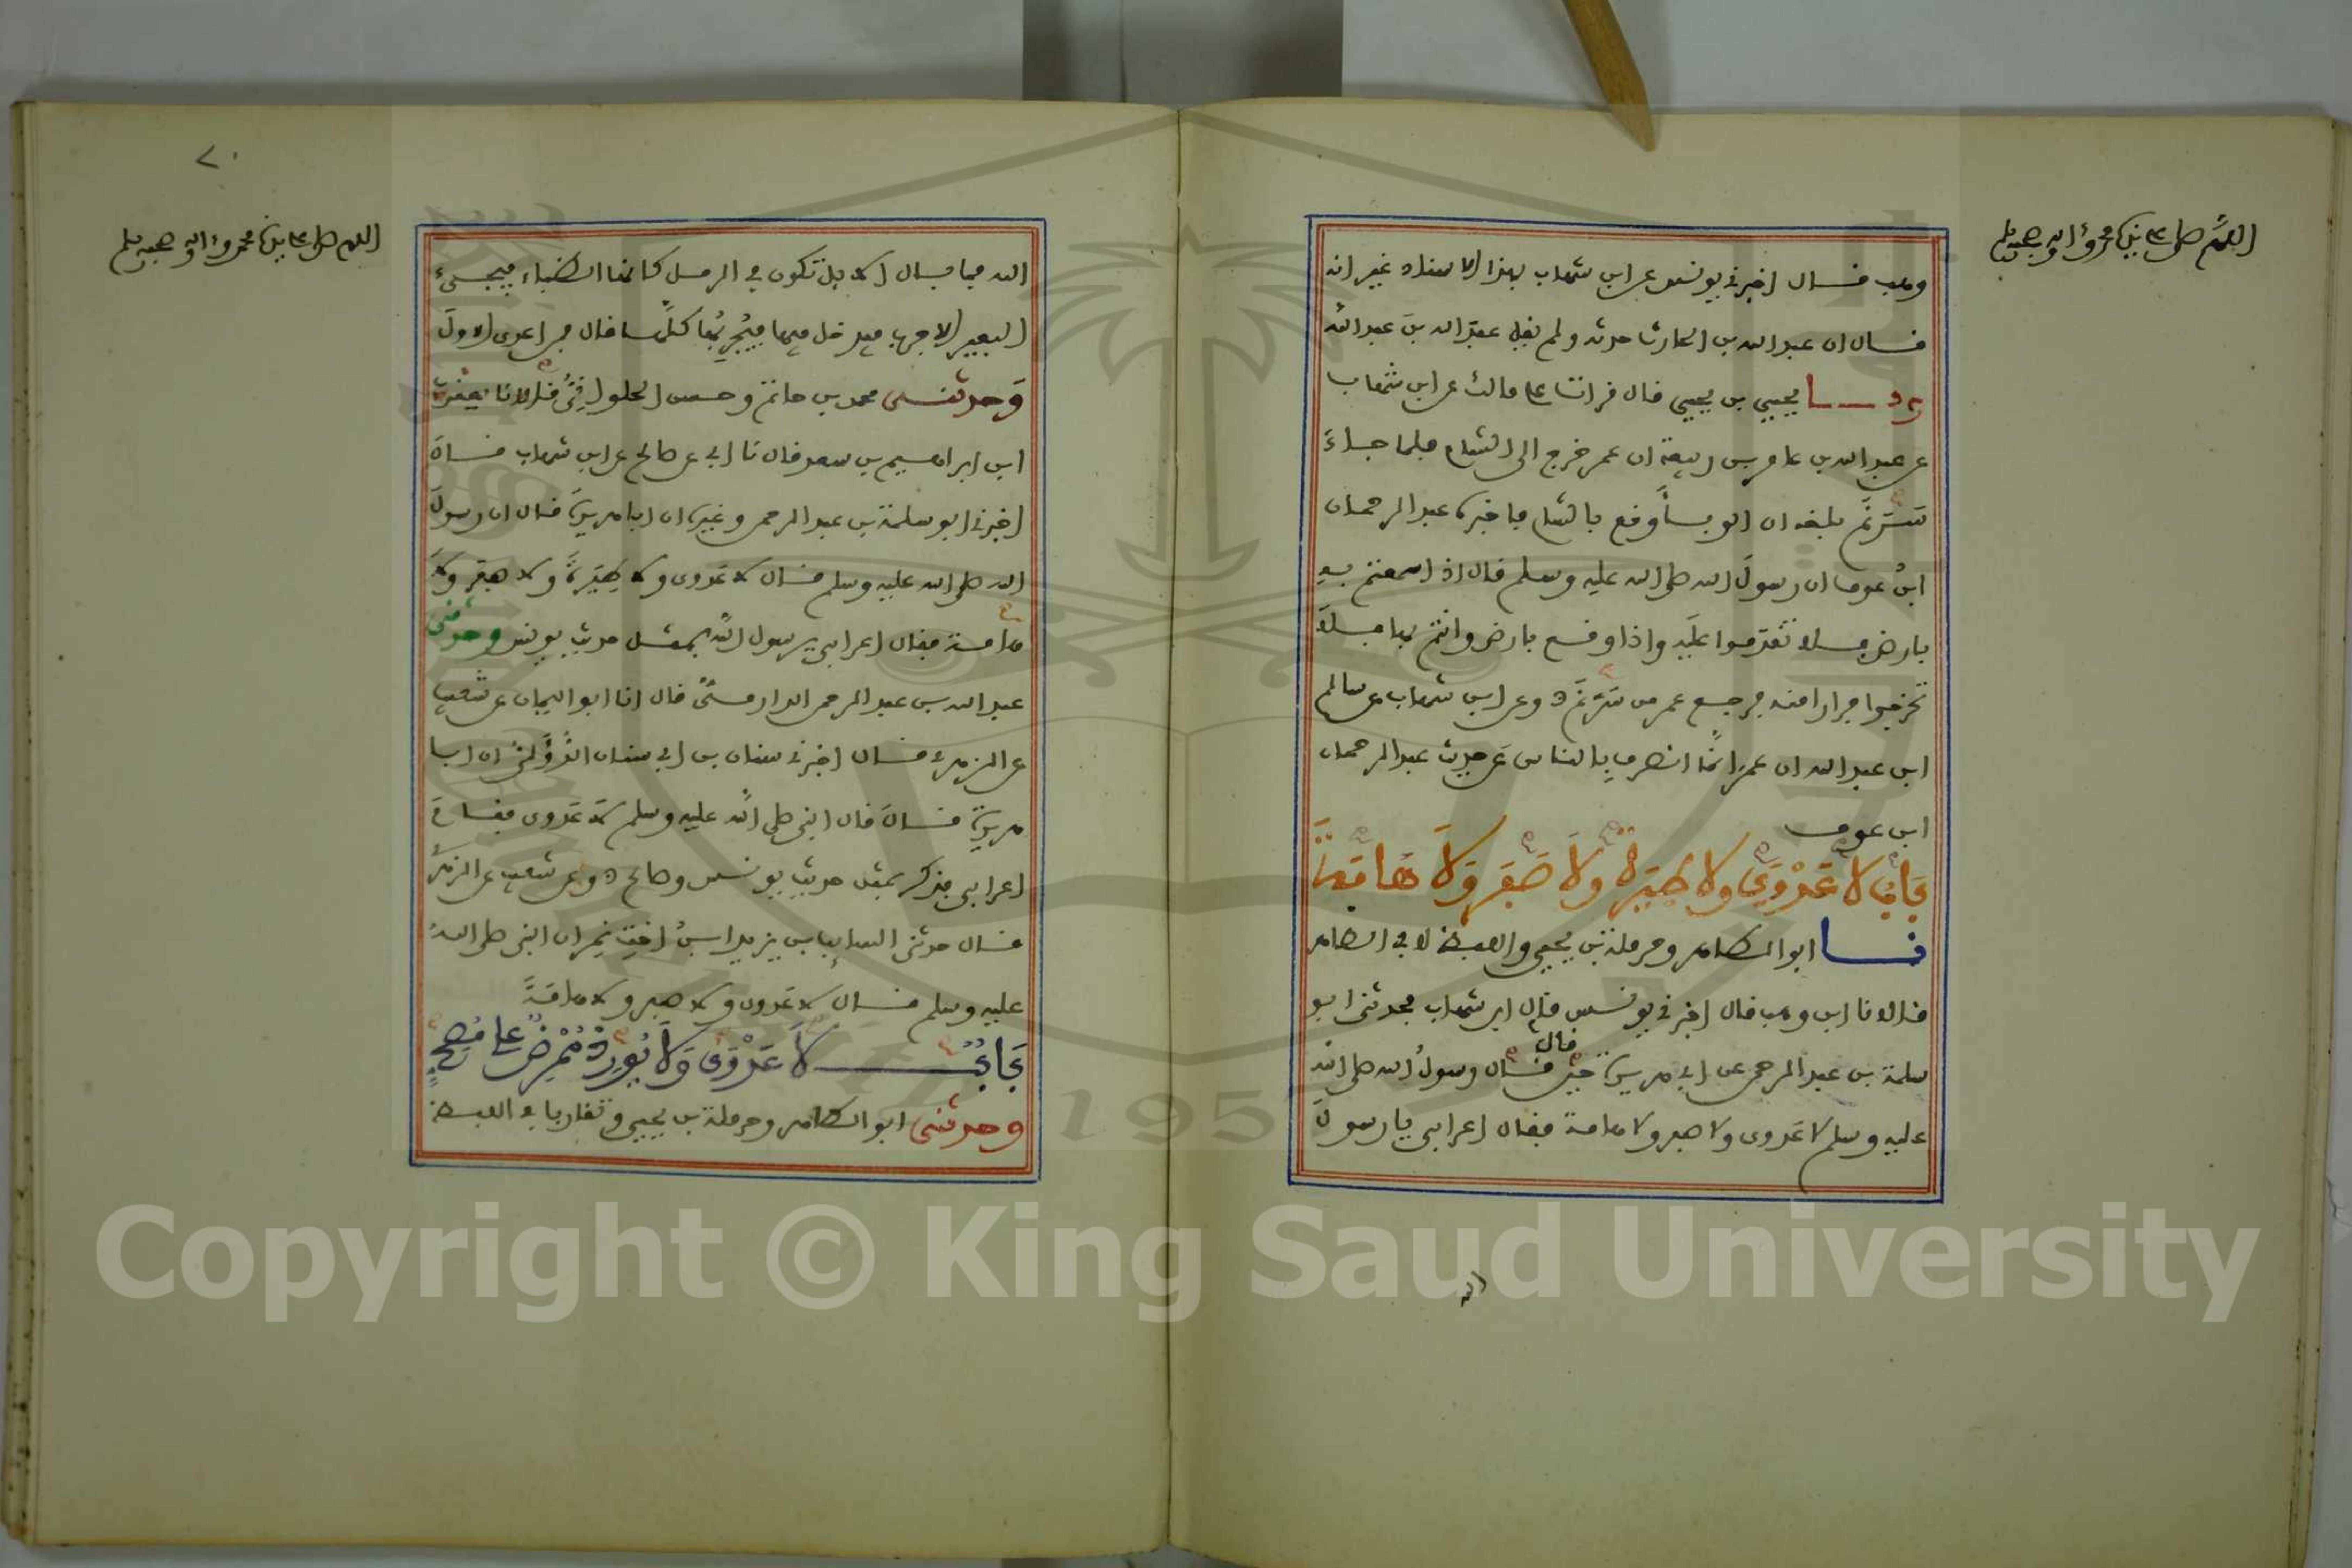 اللهم صل على نبينا محمد وآله وصحبه وسلم
وهب قال اخبرني يونس عن ابن شهاب بهذا الاسناد غير انه
قال ان عبد الله بن الحارث حدثه ولم يقل عبد الله بن عبد الله
يحيى بن يحيى قال قرات على مالك عن ابن شهاب
عن عبد الله بن عامر بن ربيعة ان عمر خرج الى الشام فلما جاء
سرغ بلغه ان الوباء وقع بالشام فاخبره عبد الرحمان
ابن عوف ان رسول الله صلى الله عليه وسلم قال اذا سمعتم به
بارض فلا تقدموا عليه واذا وقع بارض وانتم بها فلا
تخرجوا فرارا منه فرجع عمر من سرغ وعن ابن شهاب عن سالم
ابن عبد الله ان عمر انما انصرف بالناس عن حديث عبد الرحمان
ابن عوف
باب لا عَدْوَى ولا طِيَرة ولا صَفَر ولا هامة
نا ابو الطاهر وحرملة بن يحيى واللفظ لابي الطاهر
قالا نا ابن وهب قال اخبرني يونس قال ابن شهاب فحدثني ابو
سلمة بن عبد الرحمن عن ابي هريرة حين قال قال رسول الله صلى الله
عليه وسلم لا عَدوى ولا صفر ولا هامة فقال اعرابي يا رسول
الله
٧٠
اللهم صل على نبينا محمد وآله وصحبه وسلم
الله فما بال الابل تكون في الرمل كانها الظباء فيجيء
البعير الاجرب فيدخل فيها فيُجْرِبُها كلها قال فمن اعدى الاول
وحدثني محمد بن حاتم وحسن الحلواني قالا نا يعقوب
ابن ابراهيم بن سعد قال نا ابي عن صالح عن ابن شهاب قال
اخبرني ابو سلمة بن عبد الرحمن وغيره ان ابا هريرة قال ان رسول
الله صلى الله عليه وسلم قال لا عَدوى ولا طِيَرة ولا صفر ولا
هامة فقال اعرابي يرسول الله بمثل حديث يونس وحدثني
عبد الله بن عبد الرحمن الدارمي قال انا ابو اليمان عن شعيب
عن الزهري قال اخبرني سنان بن ابي سنان الدؤلي ان ابا
هريرة قال قال النبي صلى الله عليه وسلم لا عَدوى فقام
اعرابي فذكر بمثل حديث يونس وصالح وعن شعيب عن الزهري
قال حدثني السايب بن يزيد ابن اخت نمر ان النبي صلى الله
عليه وسلم قال لا عدوى ولا صفر ولا هامة
باب لا عَدْوَى ولا يُورِد مُمْرِض على مُصِحّ
وحدثني ابو الطاهر وحرملة بن يحيى وتقاربا في اللفظ
Copyright © King Saud University
1957